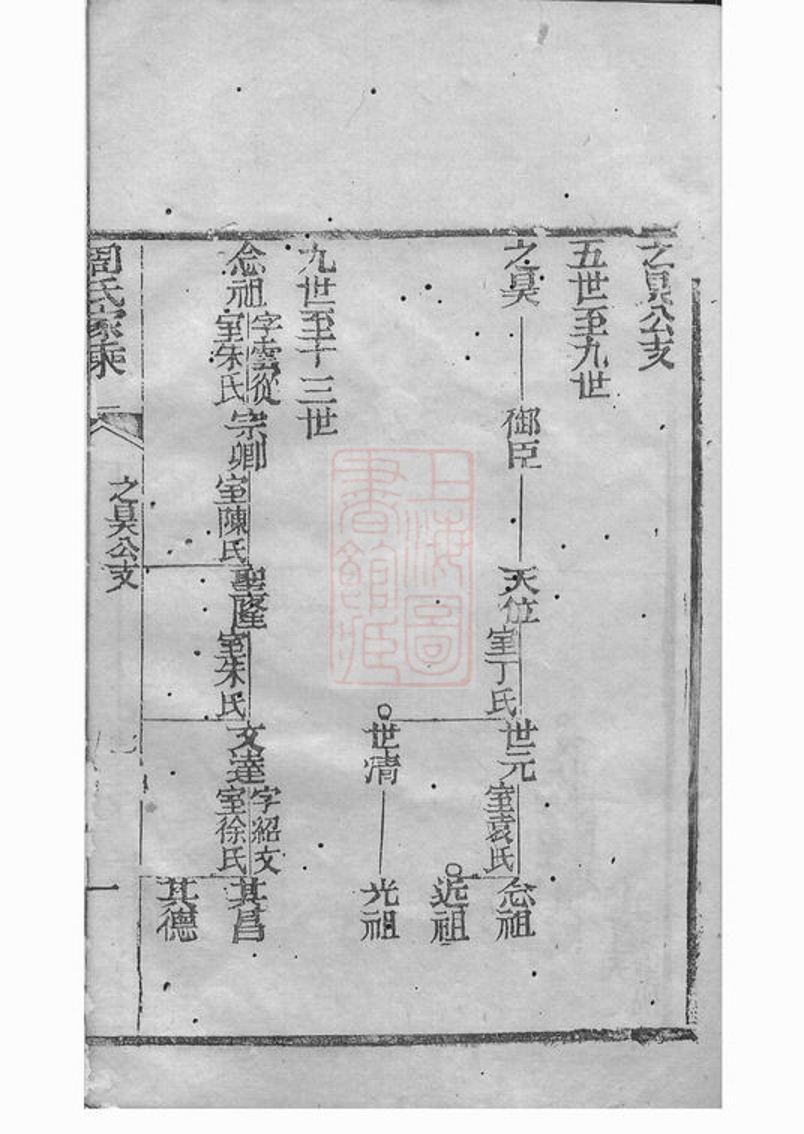 之昊公支
五世至九世
之昊 御臣 天位 室丁氏 世元 室袁氏 念祖
近祖
世淸 光祖
九世至十三世
念祖 字雲從 室朱氏 宗卿 室陳氏 聖隆 室朱氏 文達 字紹文 室徐氏 其昌
其德
周氏家乘 二 之昊公支 一
上海圖書館藏